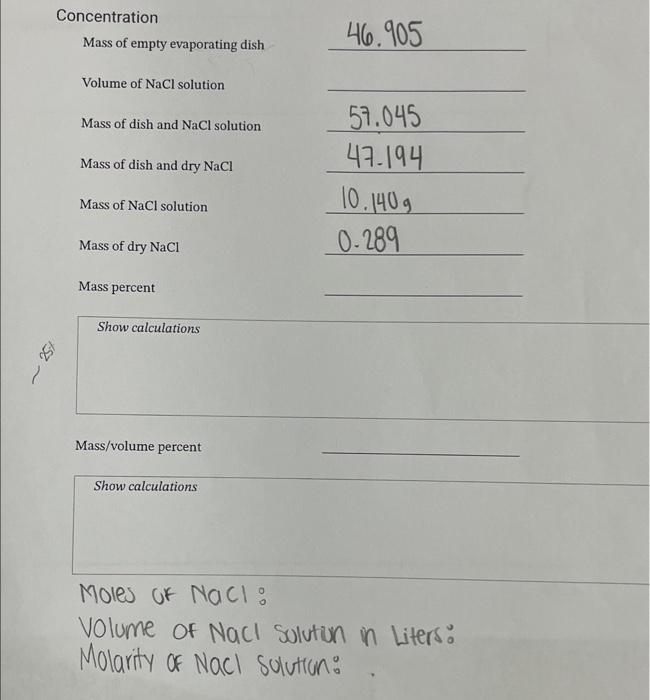 Concentration
Mass of empty evaporating dish 46.905
Volume of NaCl solution
Mass of dish and NaCl solution 57.045
Mass of dish and dry NaCl 47.194
Mass of NaCl solution 10.140g
Mass of dry NaCl 0.289
Mass percent
Show calculations
Mass/volume percent
Show calculations
Moles of NaCl:
Volume of NaCl Solution in Liters:
Molarity of NaCl Solution: